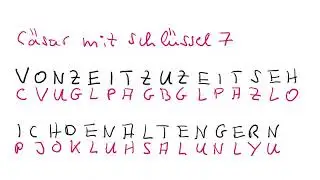 Cäsar mit Schlüssel 7
V O N Z E I T Z U Z E I T S E H
C V U G L P A G B G L P A Z L O
I C H D E N A L T E N G E R N
P J O K L U H S A L U N L Y U